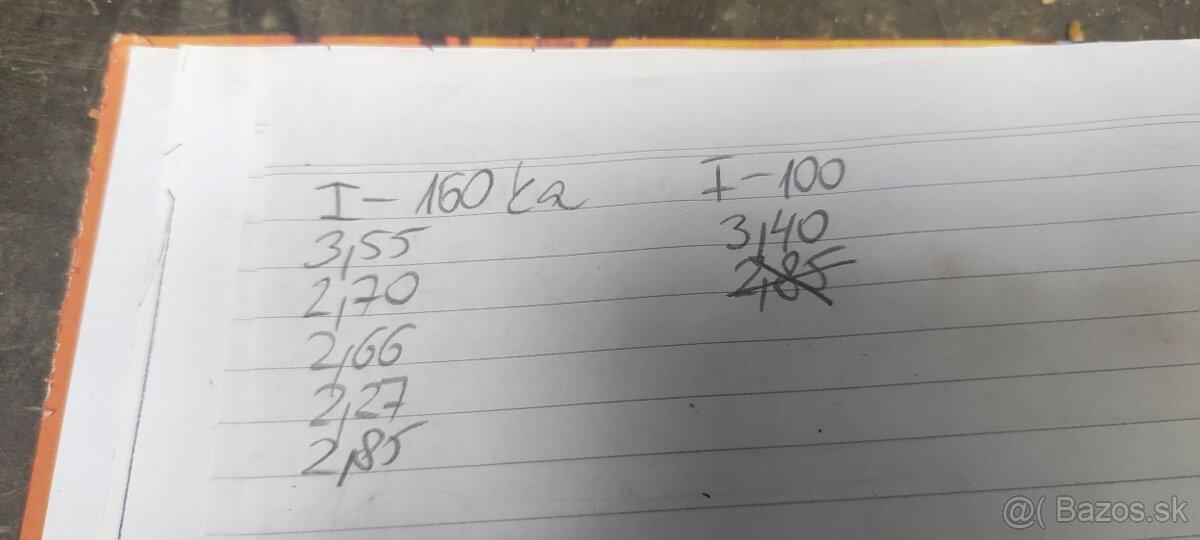 I-160 ka
3,55
2,70
2,66
2,27
2,85
I-100
3,40
2,85
@( Bazos.sk